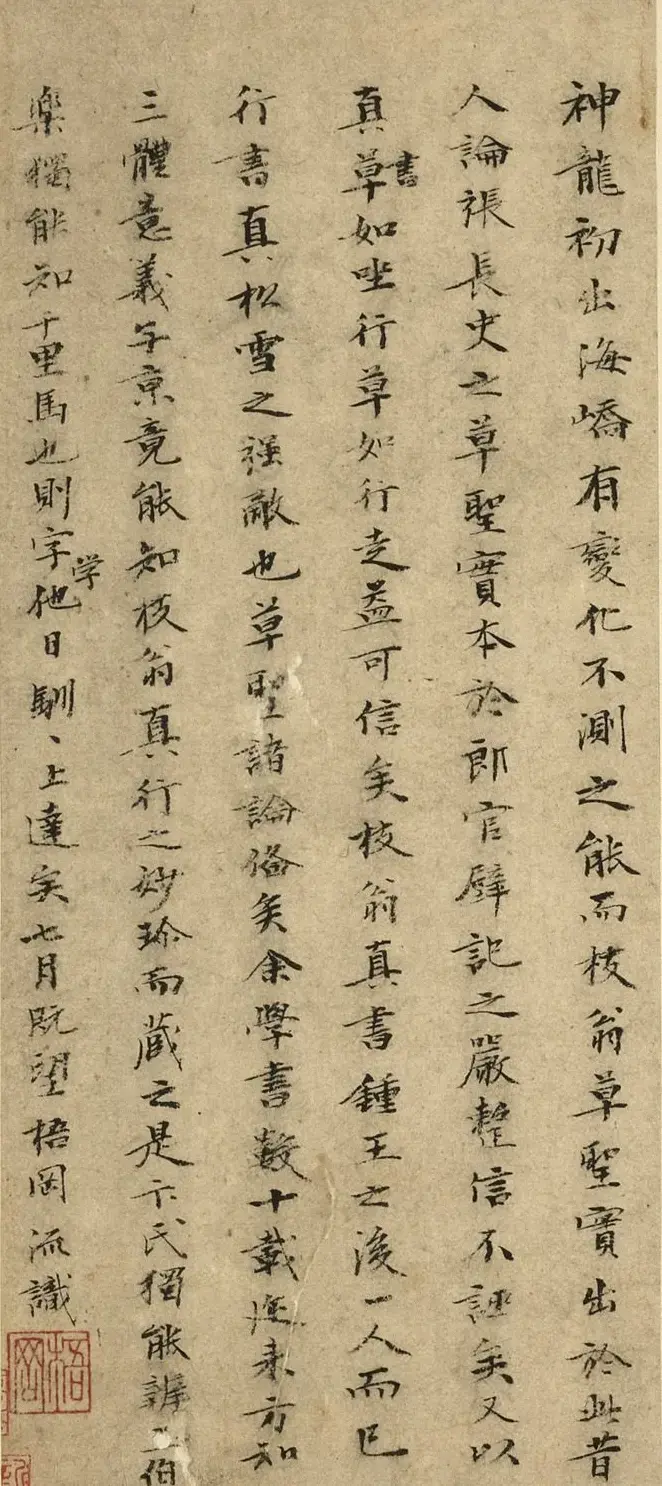 神龍初出海嶠有變化不測之能而枝翁草聖實出於此昔
人論張長史之草聖實本於郎官壁記之嚴整信不誣矣又以
真草書如坐行草如行走益可信矣枝翁真書鍾王之後一人而已
行書真松雪之强敵也草聖諸論俻矣余學書數十載邇来方知
三體意義子京竟能知枝翁真行之妙珍而蔵之是卞氏獨能辨玉伯
樂獨能知千里馬也則字学他日馴、上達矣七月既望梧岡識
梧岡